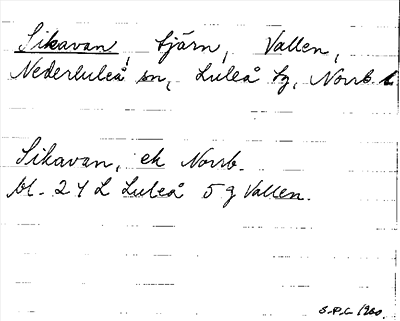 Sikavan, tjärn, Vallen,
Nederluleå sn, Luleå tg, Norrb. l.
Sikavan, ek Norrb.
bl. 24 L Luleå 5 g Vallen.
S.P.C 1960.